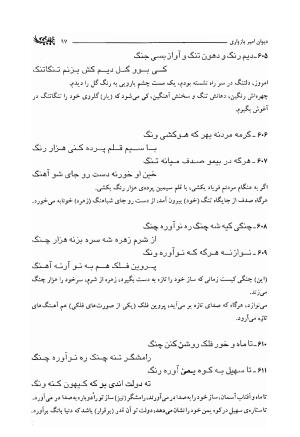 دیوان امیر پازواری
۹۷
۶۰۵- دیم رنگ و دهون تنگ و آواز بسی جنگ
کی بوو گل دیم کش بزنم تنگاتنگ
امروز، دلتنگ در سر راه نشسته بودم، یک مست چشم بارویی به رنگ گل را دیدم.
چهره‌اش رنگین، دهانش تنگ و سخنش آهنگین، کی می‌شود که (یار) گلروی خود را تنگاتنگ در
آغوش بگیرم.
۶۰۶- گرمه مردنه بهر که هوکشی ونگ
با سیم قلم پرده کنی هزار رنگ
۶۰۷- هرگه در بیمو صدف میانه تنگ
خین او خورنه دست رو جای شو آهنگ
اگر به هنگام مردنم فریاد بکشی، با قلم سیمین پرده‌ی هزار رنگی بکشی.
هرگاه صدف از جایگاه تنگ (خود) بیرون آمد، از دست رو جای شباهنگ (زهره) خونابه می‌خورد.
۶۰۸- چنگی کیه شه چنگ ره نوآوره چنگ
از شرم زهره شه سره بزنه هزار چنگ
۶۰۹- نوازنه هرگه که نوآوره ونگ
پروین فلک هم به نو آرنه آهنگ
(این) چنگی کیست زمانی که ساز خود را تازه به دست بگیرد، زهره از شرم، سرخود را هزار چنگ
می‌زند.
می‌نوازد، هرگاه که صدای تازه بر می‌آید، پروین فلک (یکی از صورت‌های فلکی) هم آهنگ‌های
تازه می‌آورد.
۶۱۰- تا ماه و خور فلک روشن کنن چنگ
رامشگر تنه چنگ ره نوآوره چنگ
۶۱۱- تا سهیل به کوه یمن آوره رنگ
ته دولت اندی بو که کیهون کنه ونگ
تا ماه و آفتاب آسمان، ساز خود را روشن می‌کنند، رامشگر (نیز) ساز تو را دوباره به صدا در می‌آورد.
تا ستاره‌ی سهیل در کوه یمن خود را نشان می‌دهد، دولت تو آن قدر (برقرار) باشد که دنیا بانگ برآورد.